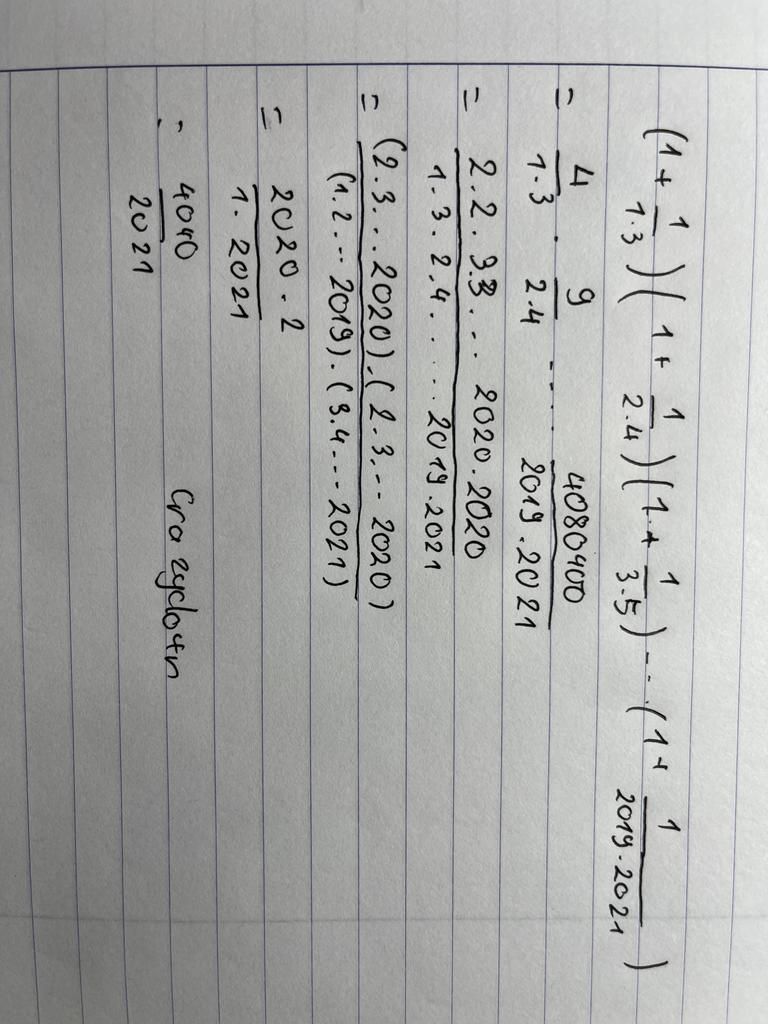 (1 + 1/1.3)(1 + 1/2.4)(1 + 1/3.5) - - . (1 + 1/2019.2021)
= 4/1.3 . 9/2.4 - - . . 4080400/2019.2021
= 2.2.3.3... 2020.2020/1.3.2.4. . . . . 2019.2021
= (2.3...2020).(2.3...2020)/(1.2...2019).(3.4...2021)
= 2020.2/1.2021
= 4040/2021 Crazyclo4n